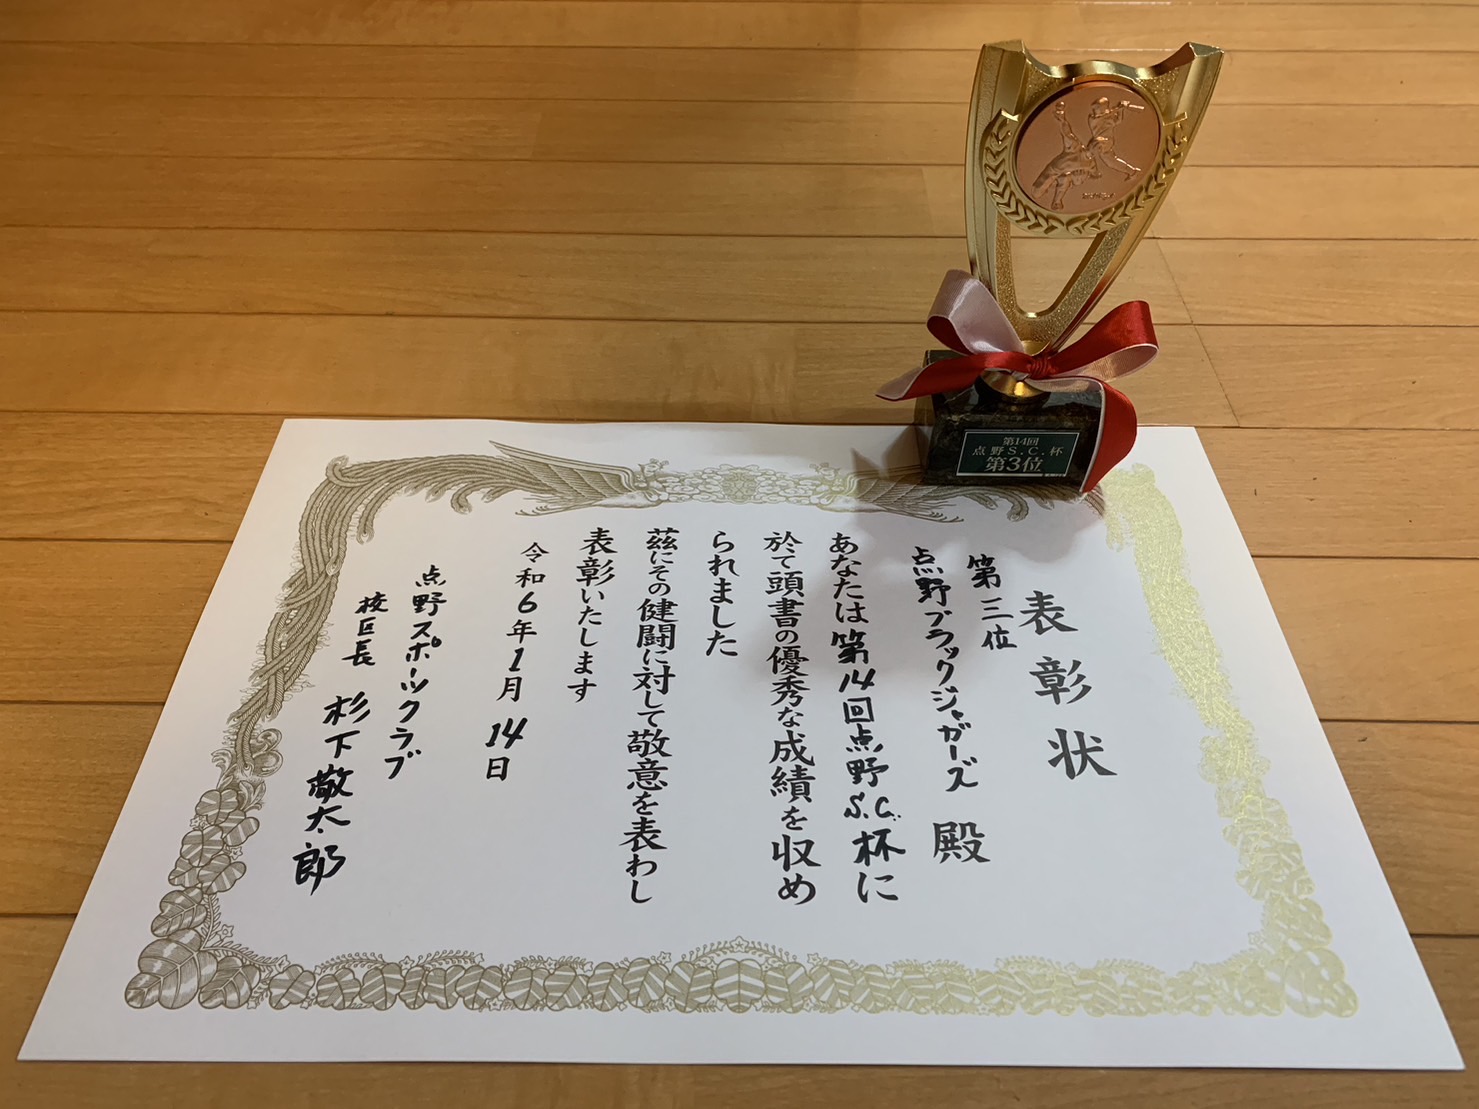 第14回
点野S.C.杯
第3位
表彰状
第三位
点野ブラックジャガーズ 殿
あなたは第14回点野S.C.杯に
於て頭書の優秀な成績を収め
られました
茲にその健闘に対して敬意を表わし
表彰いたします
令和6年1月14日
点野スポーツクラブ
校区長 杉下敬太郎